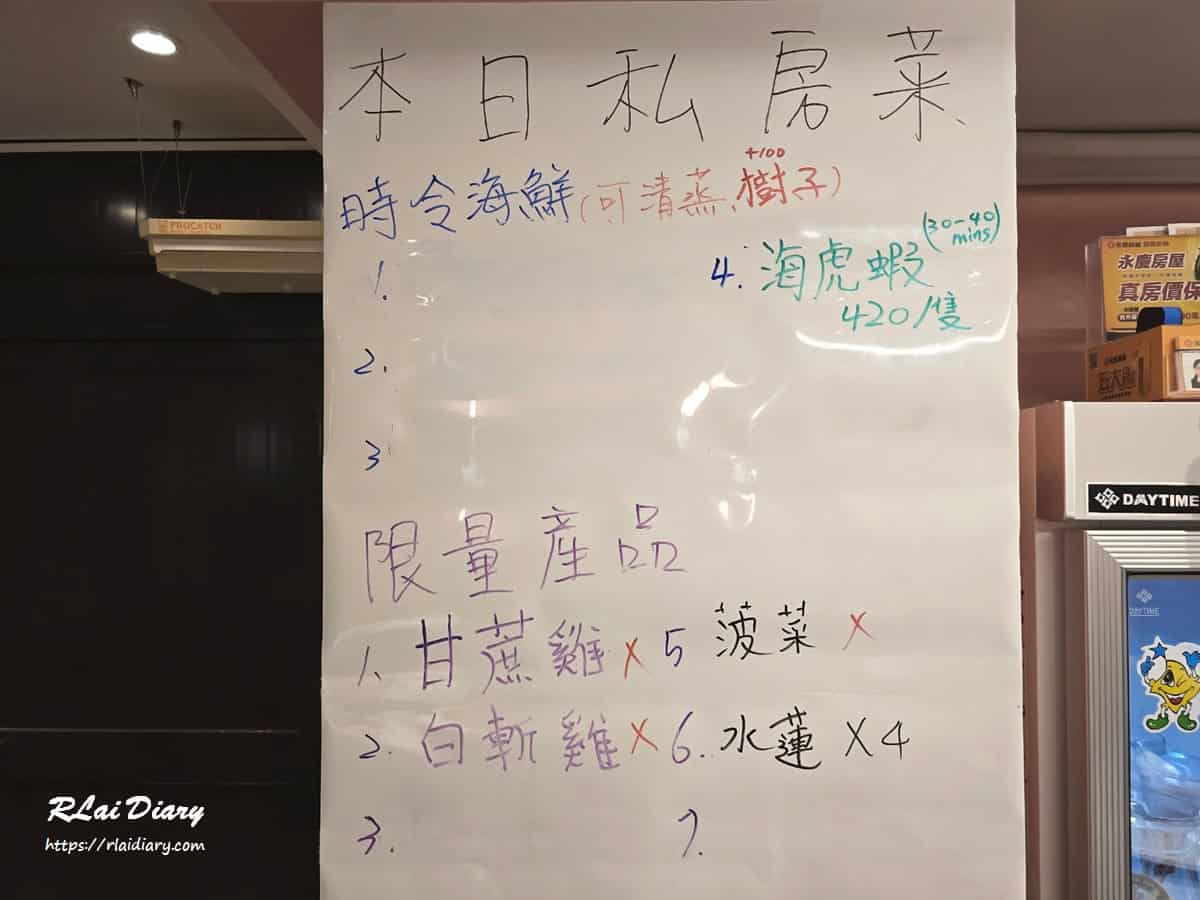 本日私房菜
時令海鮮(可清蒸、樹子)
+100
1.
4. 海虎蝦 (30-40 mins)
420/隻
2.
3
限量產品
1. 甘蔗雞 X 5 菠菜 X
2. 白斬雞 X 6. 水蓮 X4
3. 7.
PROCATCH
永慶房屋
真房價保
DAYTIME
DAYTIME
RLai Diary
https://rlaidiary.com